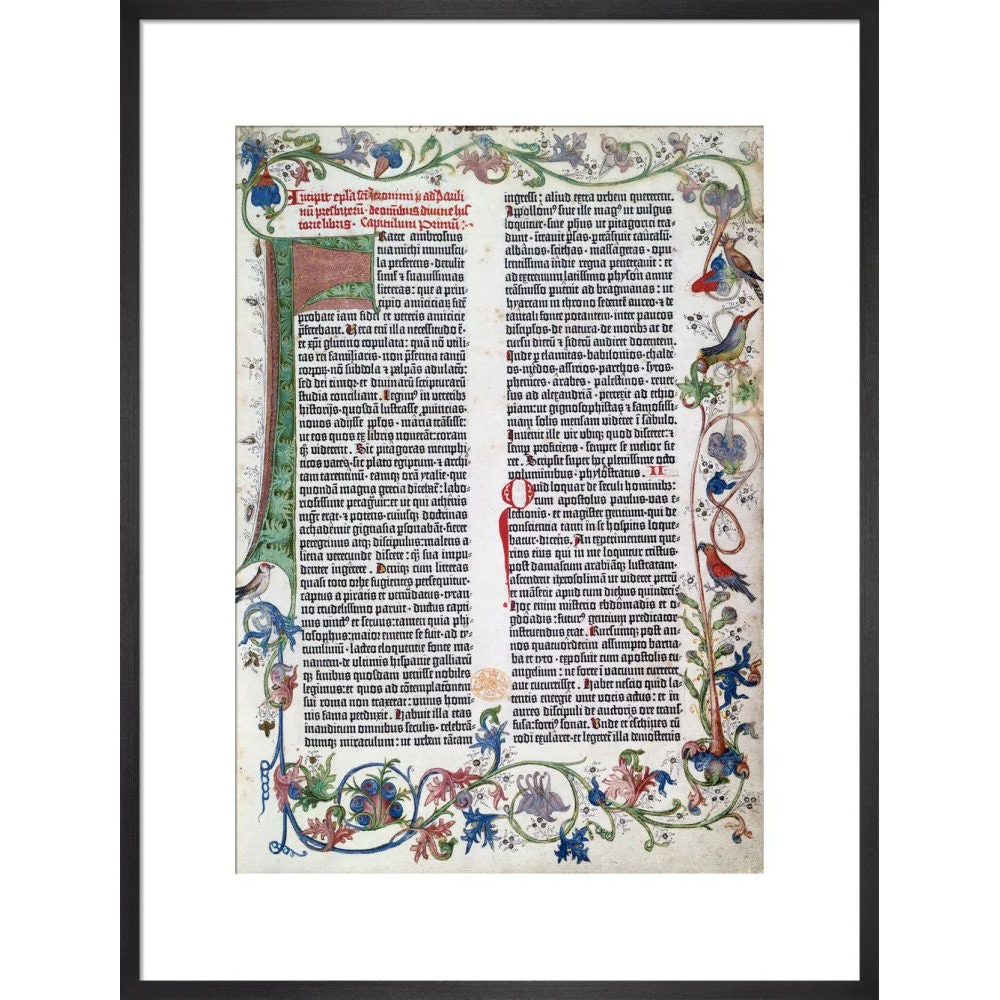 Incipit epl̃a sc̃i Jeronimi p̄ ad Pauli
nũ presbiterũ · de om̃ibus diuine his
torie libris · Capitulum Primũ:·
Frater ambrosius
tua michi munuscu
la perferens · detulit
simꝉ ⁊ suauissimas
litteras: que a prin⸗
cipio amiciciaꝝ fidẽ
probate iam fidei et veteris amicicie
p̃ferebant. Vera em̃ illa necessitudo ẽ·
et xp̃i glutino copulata: quã nõ utili⸗
tas rei familiaris · non p̃sentia tantũ
corpoꝝ· nõ subdola ⁊ palpãs adulatõ·
sed dei timoꝛ· et diuinarũ scripturarũ
studia conciliant. Legimꝰ in veterib3
historijs· quosdã lustrasse ꝓuincias·
nouos adijsse pp̃los · mãria trãsisse·
ut eos quos ex libris nouerãt: coram
q3 viderent. Sic pitagoras memphi⸗
ticos vates· sic plato egiptum· ⁊ archi⸗
tam tarentinũ · eamq3 orã ytalie· que
quondã magna grecia dicebat̃: labo⸗
riosissime peragrauit: et ut qui athẽis
mgr̃ erat · ⁊ potens· cuiusq3 doctrinas
achademie gignasia ꝑsonabãt· fieret
peregrinus atq3 discipulus: malens a⸗
liena verecunde discere: qꝫ sua impu⸗
denter ingerere. Deniq3 cum litteras
quasi toto orbe fugientes persequitur·
captus a piratis et venũdatus · tyran⸗
no crudelissimo paruit· ductus capti⸗
uus vinctꝰ et seruus: tamen quia phi⸗
losophus: maior emente se fuit· ad ty⸗
tumliuiũ · lacteo eloquentie fonte ma⸗
nantem· de ultimis hispanie galliarũ
q3 finibus quosdam venisse nobiles
legimus: et quos ad cõtemplacõem
sui roma non traxerat: unius homi⸗
nis fama perduxit. Habuit illa etas
inauditum omnibus seculis· celebrã⸗
dumq3 miraculum: ut urbem tãtam
ingressi: aliud extra urbem quererent.
Appollonꝰ siue ille magꝰ ut vulgus
loquitur· siue ph̃us ut pitagorici tra⸗
dunt · ĩtrauit ꝑsas· ꝑtrãsiuit caucasũ·
albãnos· scithas · massagetas · opu⸗
lentissima ĩdie regna penetrauit: et
ad extremum latissimo physon amne
trãsmisso puenit ad bragmanas : ut
hyarcam in throno sedentẽ aureo· ⁊ de
tantali fonte potantem· inter paucos
discipłos· de natura· de moribꝫ ac de
cursu dierũ ⁊ siderũ audiret docentem.
Inde ꝑ elamitas· babilonios· chaldẽ
os· medos· assirios· parthos · syros·
phenices · arabes · palestinos · reuer⸗
sus ad alexandriã · perrexit ad ethio⸗
piam: ut gignosophistas ⁊ famosissi⸗
mam solis mensam videret ĩ sabulo.
Inuenit ille vir ubiqꝫ quod disceret: ⁊
semꝑ proficiens · semper se melior fie⸗
ret. Scripsit super hoc plenissime octo
voluminibus· phylostratus. II
Quid loquar de seculi hominibꝫ:
cum apostolus paulus· vas e⸗
lectionis· et magister gentium· qui de
conscientia tanti in se hospitis loque⸗
batur· dicens. An experimentum que⸗
ritis eius qui in me loquitur cristus·
post damascum arabiãqꝫ lustratam·
ascenderit iherosolimã ut videret petrũ
et mãserit apud eum diebus quindeci·
Hoc enim misterio ebdõmadis et o⸗
gdõadis: futurꝰ gentium predicator
instruendus erat. Rursumqꝫ post an⸗
nos quatuordecim assumpto barna⸗
ba et tyto · exposuit cum apostolis eu
angelium: ne forte ĩ vacuum curreret
aut cucurrisset. Habet nescio quid la⸗
tentis energie viue vocis actus: et in
aures discipuli de auctoris ore trans⸗
fusa: fortiꝰ sonat. Unde et eschines cũ
rodi exularet· et legeret̃ illa demostenis